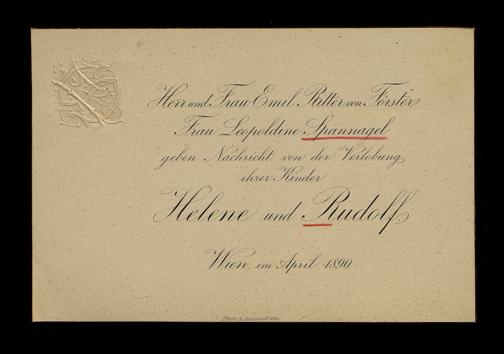 Herr und Frau Emil Ritter von Förster
Frau Leopoldine Spannagel
geben Nachricht von der Verlobung
ihrer Kinder
Helene und Rudolf
Wien, im April 1890